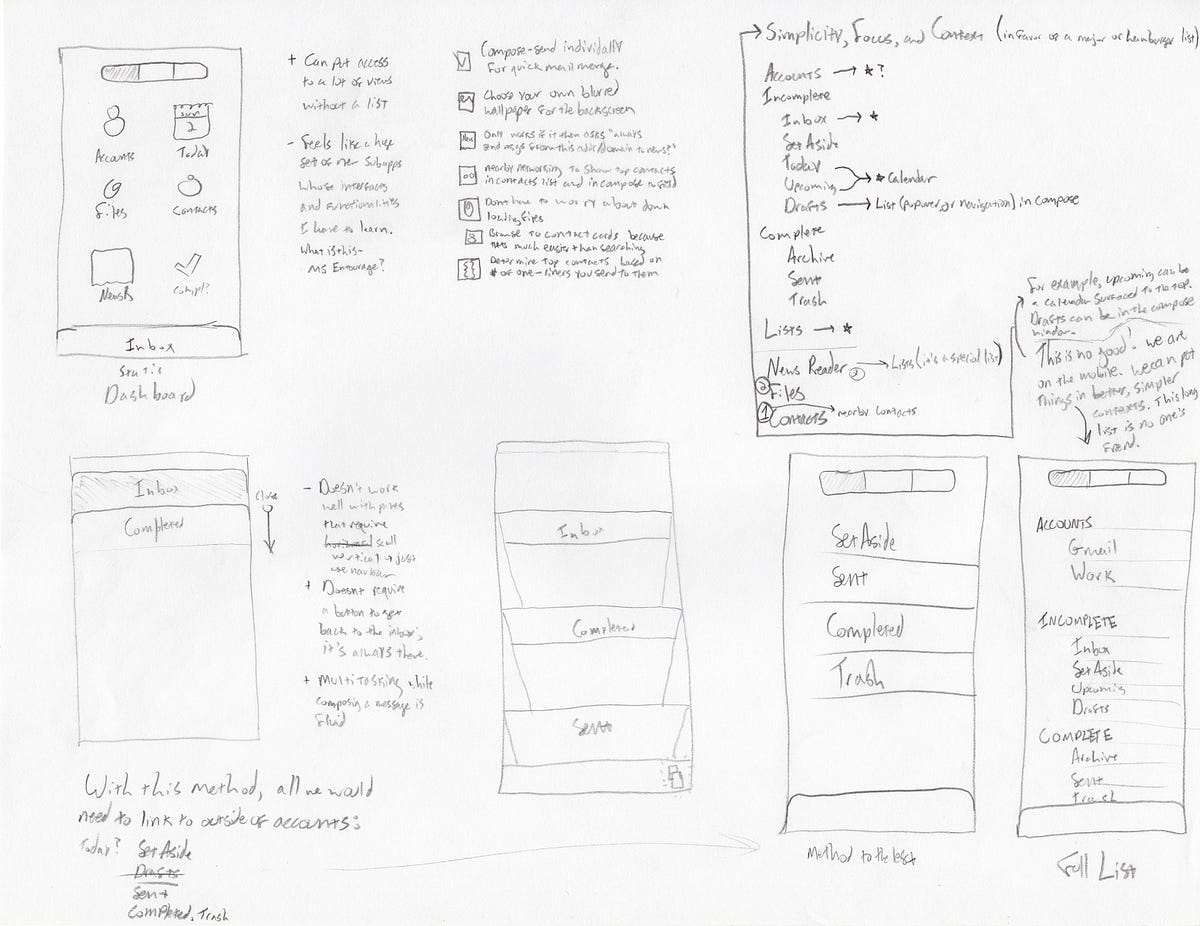 Accounts
SUN
2
Today
Files
Contacts
News
Compl?
Inbox
Static
Dashboard
+ Can put access
to a lot of views
without a list
- Feels like a huge
set of new subapps
whose interfaces
and functionalities
I have to learn.
What is this-
MS Entourage?
Compose-send individally
for quick mail merge.
Choose your own blurred
wallpaper for the backscreen
News
Only works if it then asks "always
send msgs from this addr/domain to news?"
nearby networking to show top contacts
in contacts list and in compose to field
Dont have to worry about down
loading files
Browse to contact cards because
it's much easier than searching
Determine top contacts based on
# of one-liners you send to them
→ Simplicity, Focus, and Context (in favor of a major or hamburger list)
Accounts → * ?
Incomplete
Inbox → *
Set Aside
Today
Upcoming
* Calendar
Drafts → List (popover, or navigation) in compose
Complete
Archive
Sent
Trash
Lists → *
News Reader → Lists (it's a special list)
3
2 Files
1 Contacts → nearby contacts
For example, upcoming can be
a calendar surfaced to the top.
Drafts can be in the compose
window.
This is no good! we are
on the mobile. we can put
things in better, simpler
contexts. This long
list is no one's
friend.
Inbox
Completed
Close
- Doesn't work
well with
that require
horizontal scroll
vertical → just
use navbar
+ Doesnt require
a button to get
back to the inbox,
it's always there.
+ Multitasking while
composing a message is
fluid
With this method, all we would
need to link to outside of accounts:
Today? Set Aside
Drafts
Sent
Completed, Trash
Inbox
Completed
Sent
Set Aside
Sent
Completed
Trash
Method to the left
ACCOUNTS
Gmail
Work
INCOMPLETE
Inbox
Set Aside
Upcoming
Drafts
COMPLETE
Archive
Sent
Trash
Full List